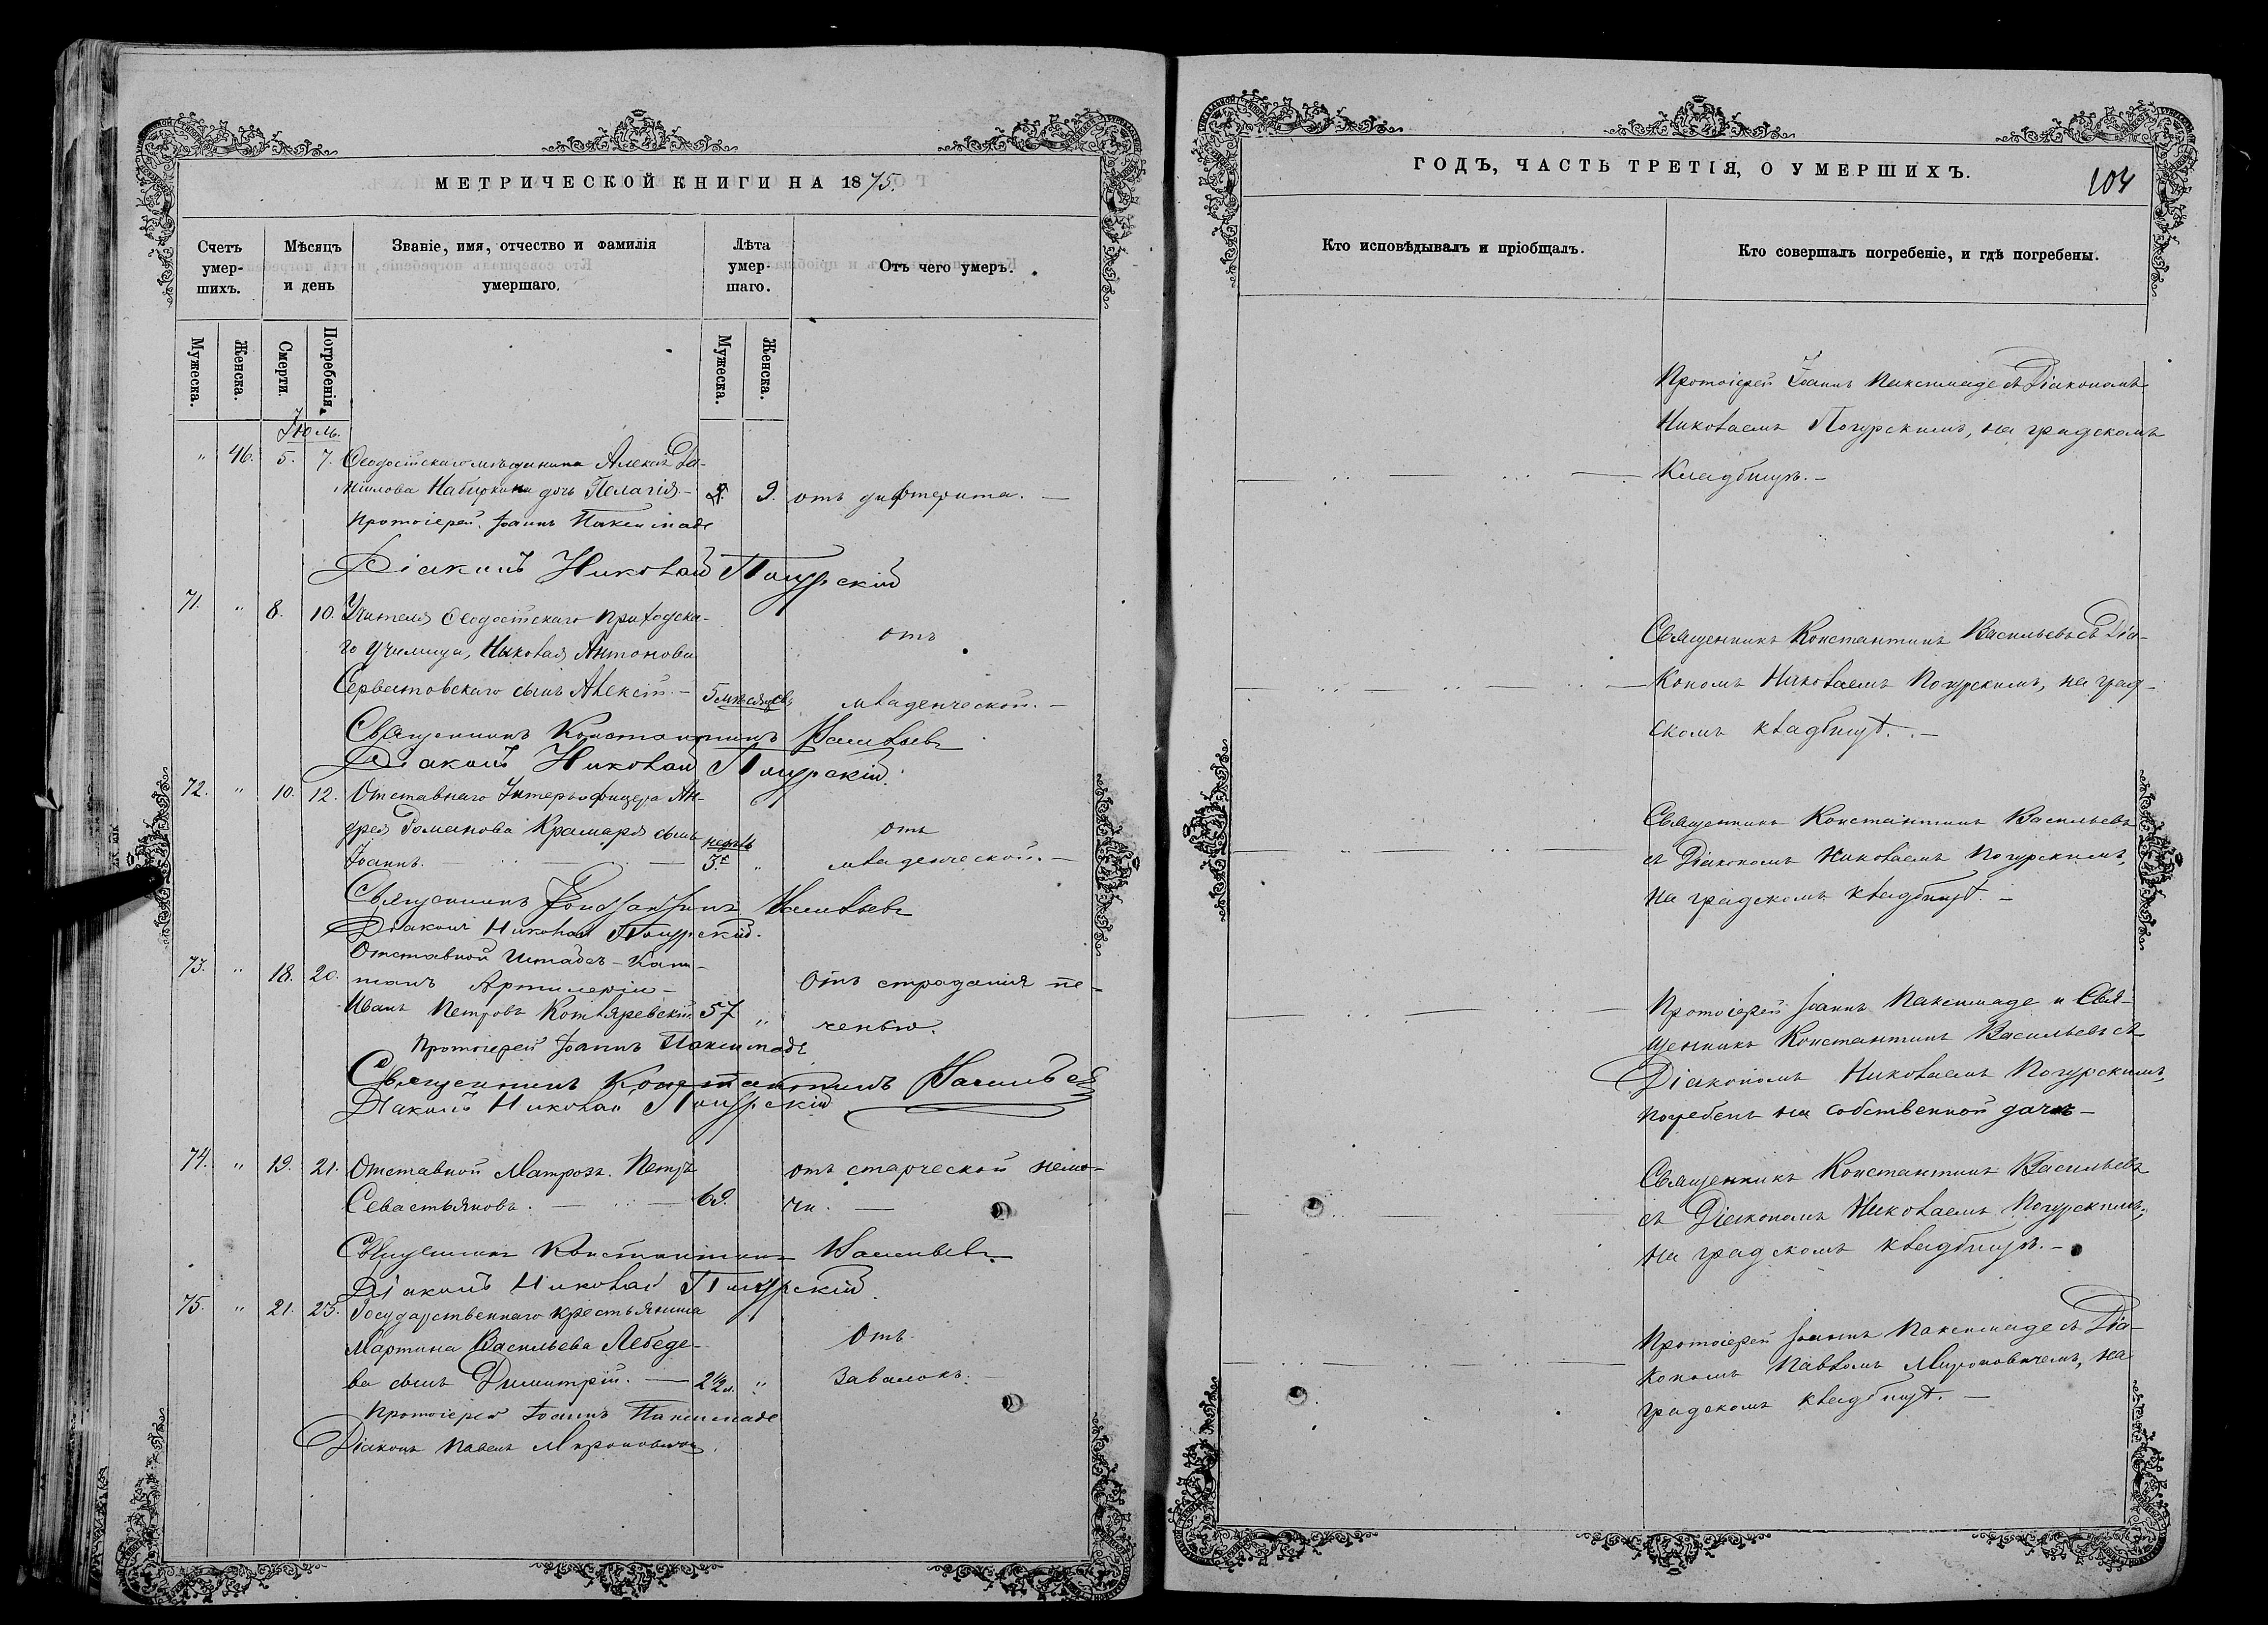 МЕТРИЧЕСКОЙ КНИГИ НА 1875.
Счетъ умер-шихъ.
Мѣсяцъ и день
Званіе, имя, отчество и фамилія умершаго.
Лѣта умер-шаго.
Отъ чего умеръ.
Мужеска.
Женска.
Смерти.
Погребенія.
Мужеска.
Женска.
Іюль.
" 46. 5. 7. Ѳеодосійскаго мѣщанина Алексѣя Да-
ниилова Набиркина дочь Пелагія. — 9. отъ дифтерита. —
Протоіерей Іоаннъ Паксимаде
Діаконъ Николай Погурскій
71. " 8. 10. Учителя Ѳеодосійскаго приходска-
го училища, Николая Антонова отъ
Серватовскаго сынъ Алексій. — 5 мѣсяцевъ младенческой. —
Священникъ Константинъ Васильевъ
Діаконъ Николай Погурскій.
72. " 10. 12. Отставнаго Унтеръ-офицера Ан-
дрея Романова Крамаря сынъ недѣль отъ
Іоаннъ. — 3. " младенческой. —
Священникъ Константинъ Васильевъ
Діаконъ Николай Погурскій.
73. " 18. 20. Отставной Штабсъ-Капи-
танъ Артилеріи — Отъ страданія пе-
Иванъ Петровъ Котляревскій 57 " ченью.
Протоіерей Іоаннъ Паксимаде
Священникъ Константинъ Васильевъ
Діаконъ Николай Погурскій
74. " 19. 21. Отставной Матрозъ Петръ отъ старческой немо-
Севастьяновъ. — 69. чи. —
Священникъ Константинъ Васильевъ
Діаконъ Николай Погурскій
75. " 21. 23. Государственнаго крестьянина
Мартина Васильева Лебеде- Отъ
ва сынъ Димитрій. — 2 1/2 л. " завалокъ. —
Протоіерей Іоаннъ Паксимаде
Діаконъ Павелъ Мироновичъ.
ГОДЪ, ЧАСТЬ ТРЕТІЯ, О УМЕРШИХЪ.
104
Кто исповѣдывалъ и пріобщалъ.
Кто совершалъ погребеніе, и гдѣ погребены.
Протоіерей Іоаннъ Паксимаде съ Діакономъ
Николаемъ Погурскимъ, на градскомъ
Кладбищѣ. —
Священникъ Константинъ Васильевъ съ Діа-
кономъ Николаемъ Погурскимъ, на град-
скомъ кладбищѣ. —
Священникъ Константинъ Васильевъ
съ Діакономъ Николаемъ Погурскимъ,
на градскомъ кладбищѣ. —
Протоіерей Іоаннъ Паксимаде и Свя-
щенникъ Константинъ Васильевъ съ
Діакономъ Николаемъ Погурскимъ,
погребенъ на собственной дачѣ —
Священникъ Константинъ Васильевъ
съ Діакономъ Николаемъ Погурскимъ,
на градскомъ кладбищѣ. —
Протоіерей Іоаннъ Паксимаде съ Діа-
кономъ Павломъ Мироновичемъ, на
градскомъ кладбищѣ. —